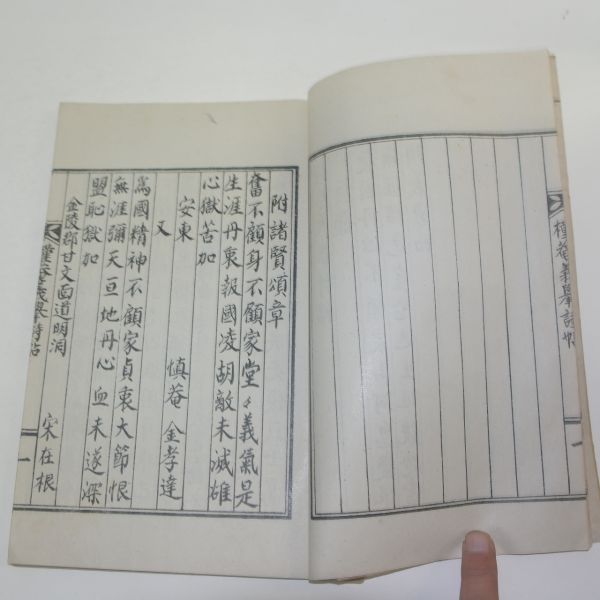 附諸賢頌章
奮不顧身不顧家堂〻義氣是
生涯丹衷報國凌胡敵未滅雄
心獄苦加
安東 慎菴 金孝達
又
爲國精神不顧家貞衷大節恨
無涯彌天亘地丹心血未遂深
盟恥獄加
金陵郡甘文面道明洞 宋在根
義擧詩帖
一
義擧詩帖
一